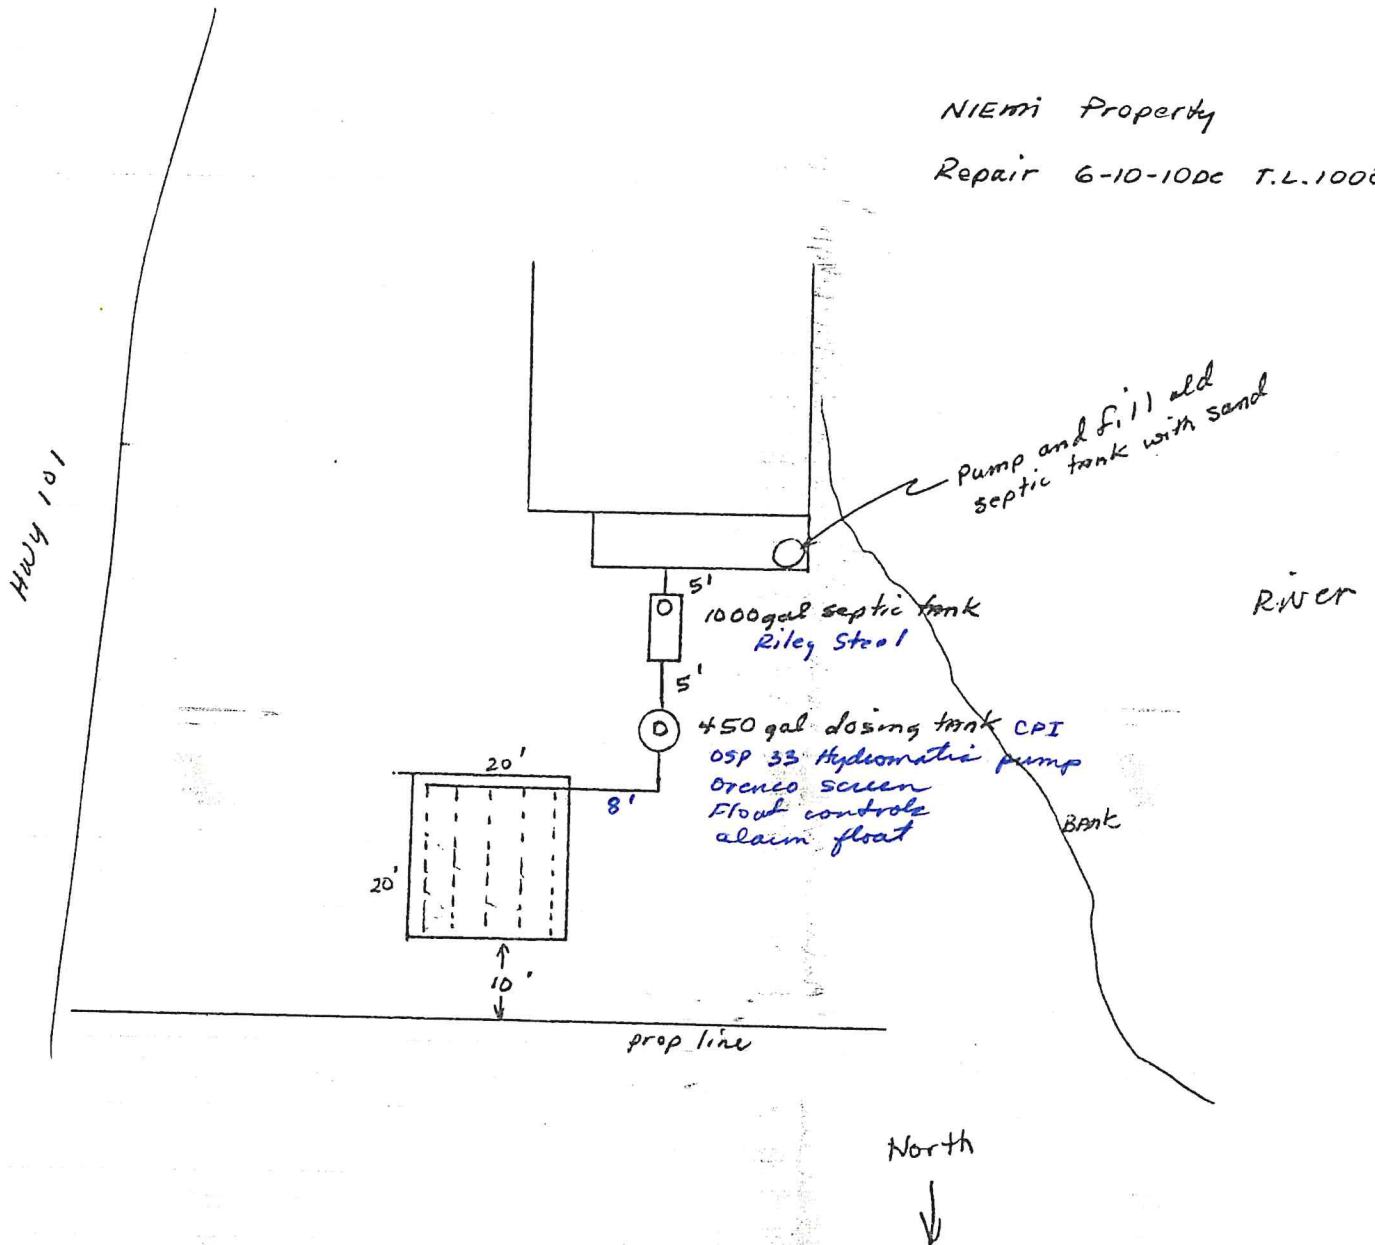 NIEmi Property
Repair 6-10-10DC T.L.1000
Hwy 101
pump and fill old
septic tank with sand
5'
1000 gal septic tank
Riley Steel
River
5'
450 gal dosing tank CPI
OSP 33 Hydromatic pump
Orenco screen
Float controls
alarm float
20'
8'
BAnk
20'
10'
prop line
North